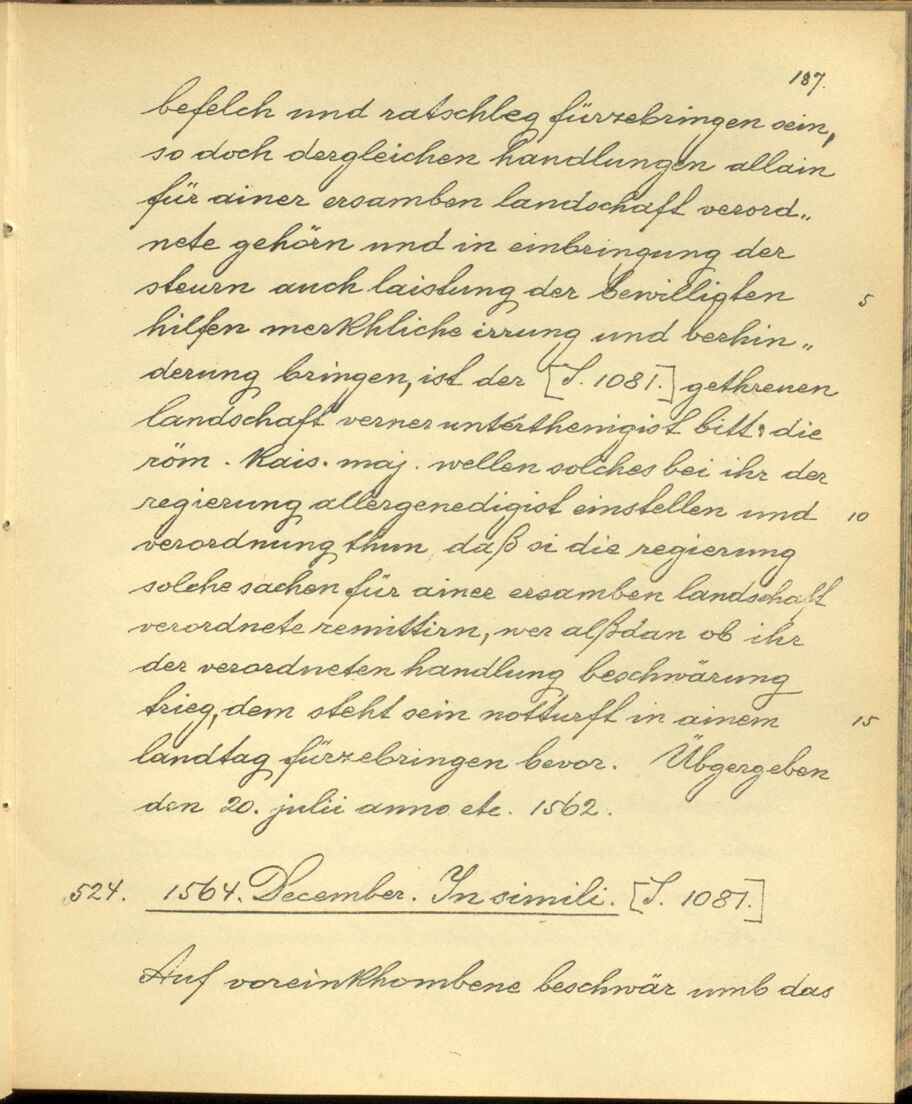 187.
befelch und ratschleg fürzebringen sein,
so doch dergleichen handlungen allain
für ainer ersamben landschaft verord„
nete gehörn und in einbringung der
steurn auch laistung der bewilligten 5
hilfen merkhliche irrung und verhin„
derung bringen, ist der [S. 1081.] gethreuen
landschaft verner unterthenigist bitt: die
röm. kais. maj. wellen solches bei ihr der
regierung allergenedigist einstellen und 10
verordnung thun, daß si die regierung
solche sachen für ainer ersamben landschaft
verordnete remittirn, wer alßdan ob ihr
der verordneten handlung beschwärung
trieg, dem steht sein notturft in ainem 15
landtag fürzebringen bevor. Übgergeben
den 20. julii anno etc. 1562.
524. 1564. December. In simili. [S. 1081.]
Auf voreinkhombene beschwär umb das